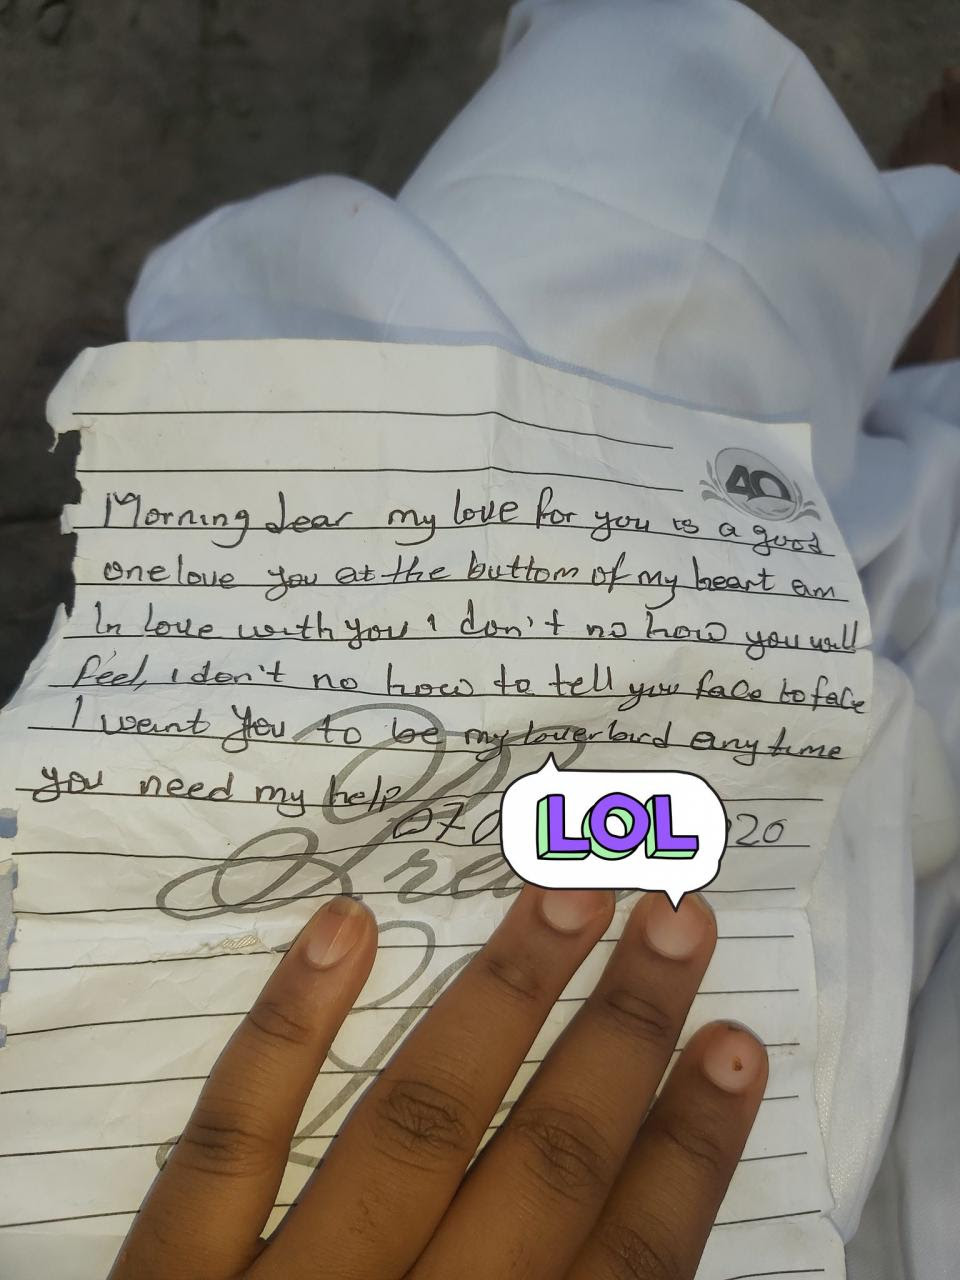 40
Morning dear my love for you is a good
one love you at the buttom of my heart am
In love with you I don't no how you will
feel, i don't no how to tell you face to face
I want you to be my loverbird any time
you need my help
070
20
LOL